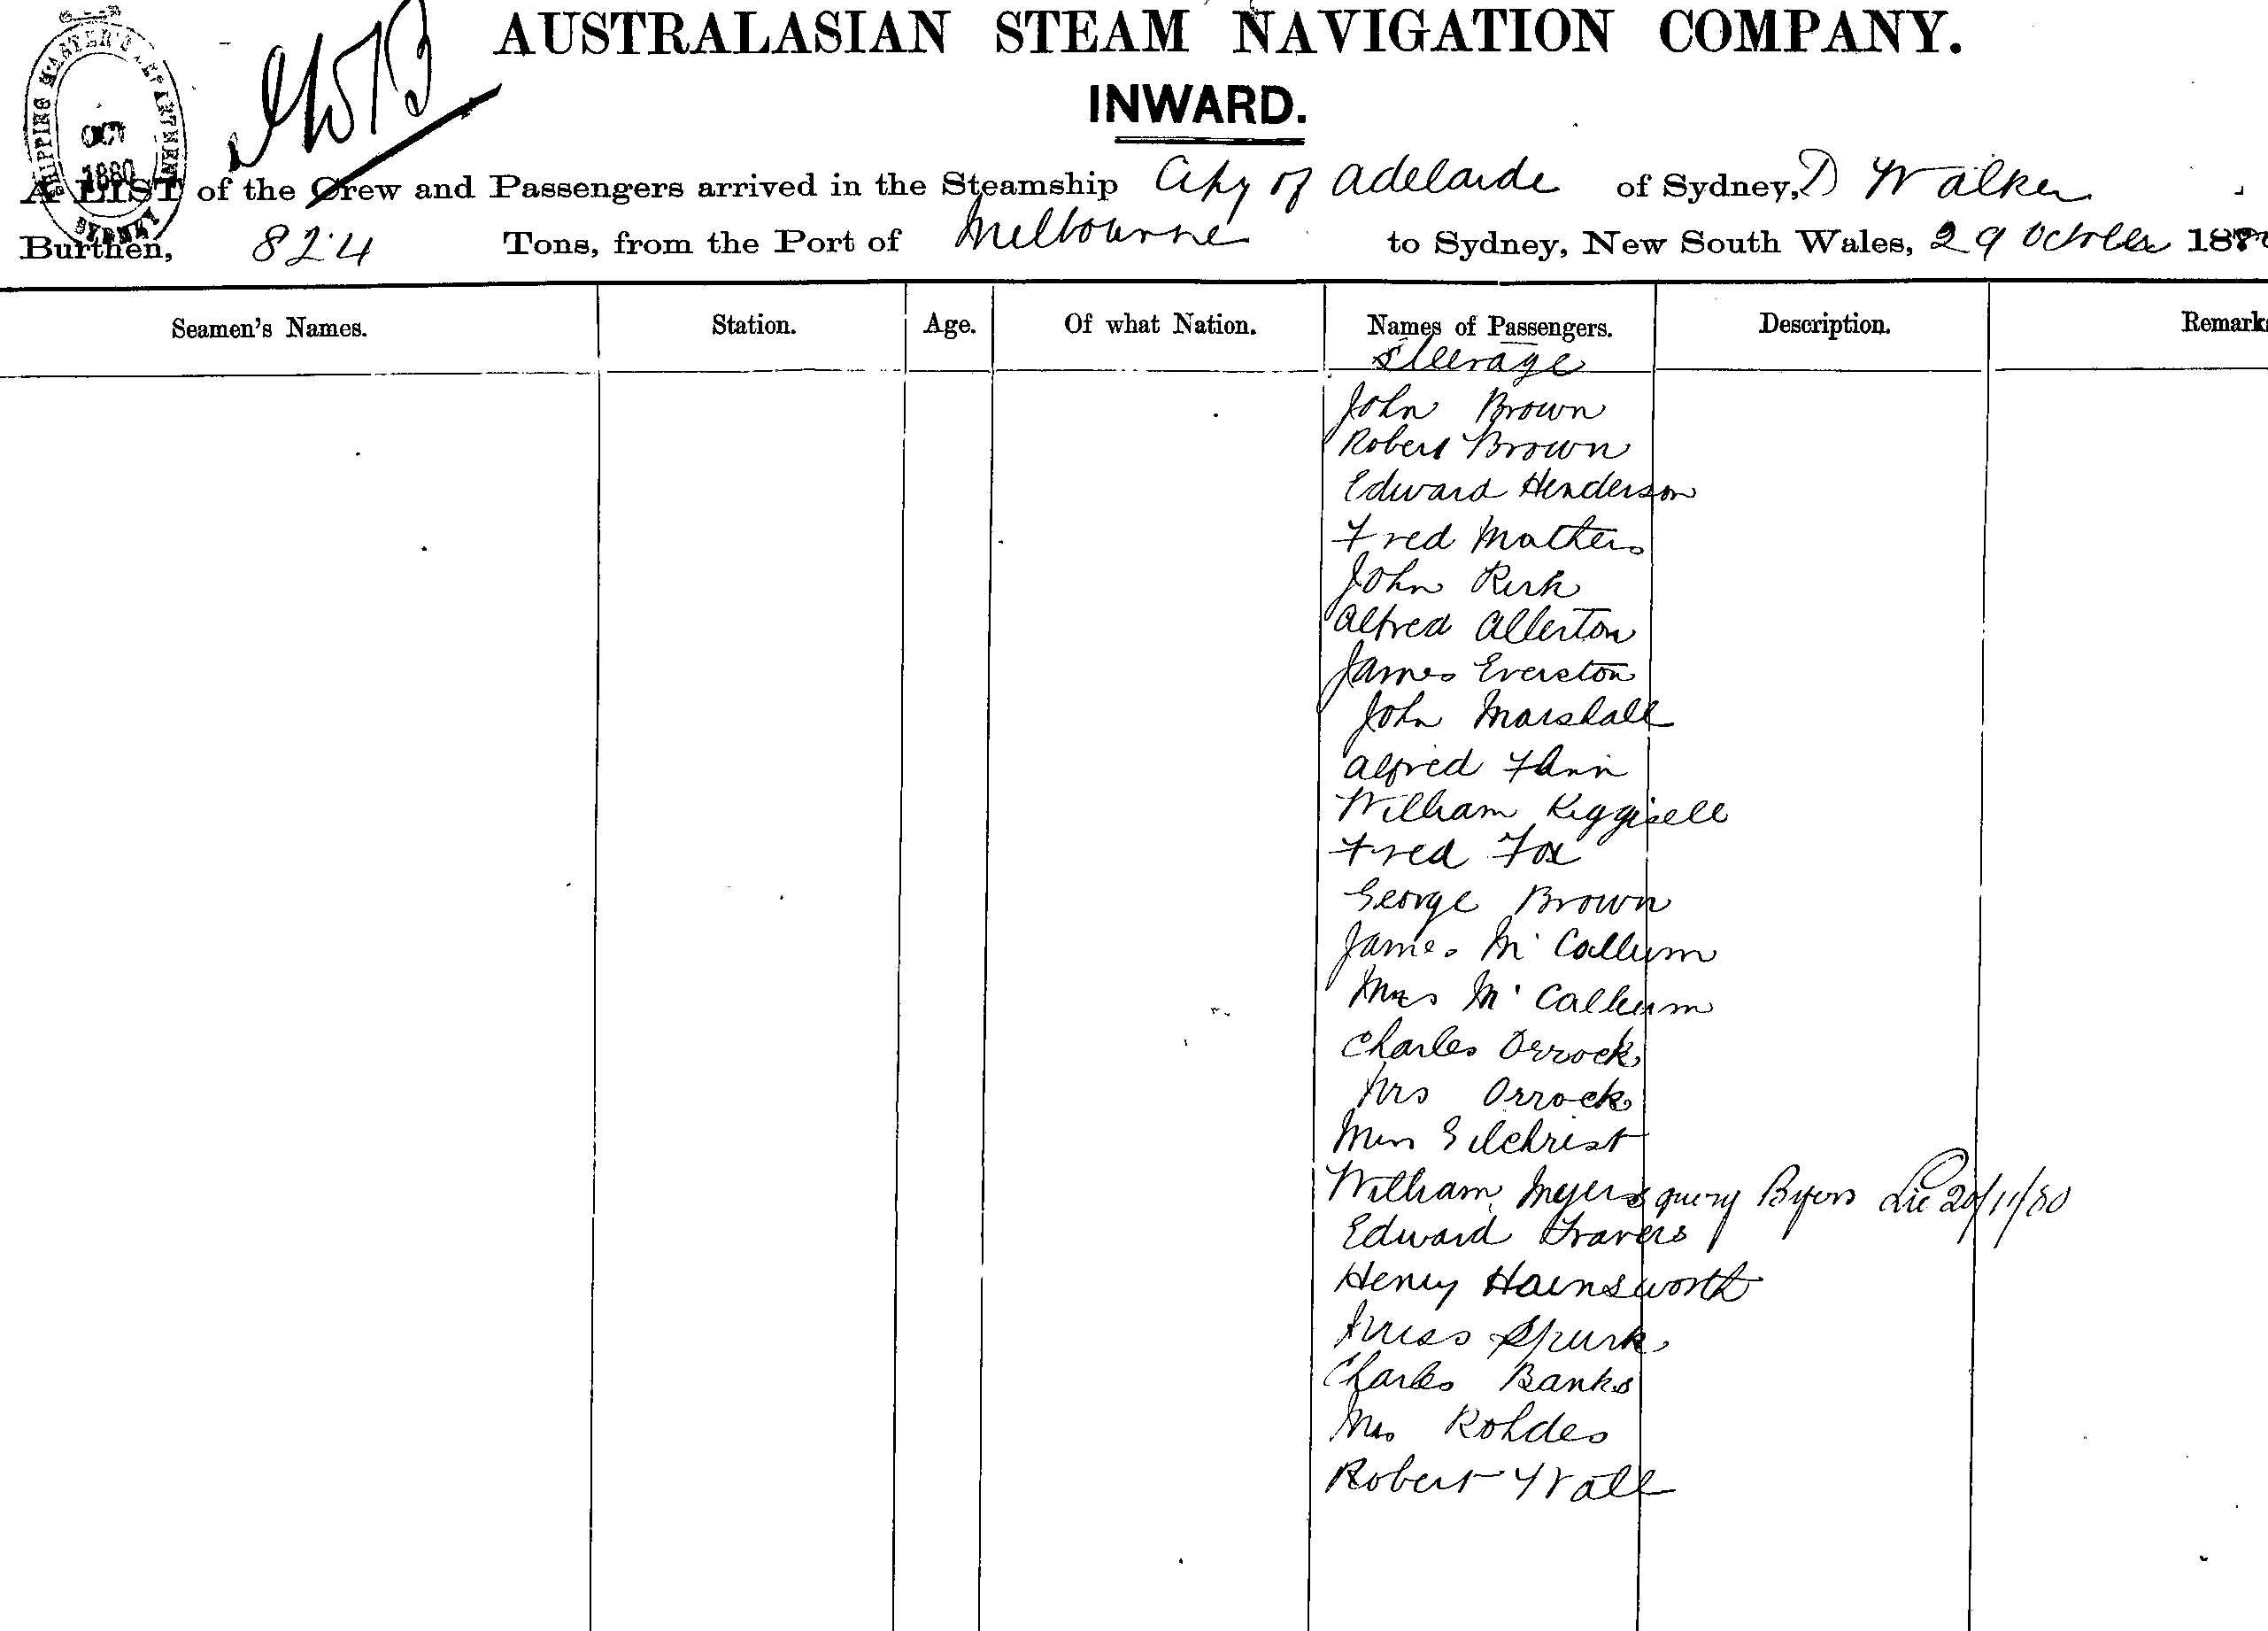 AUSTRALASIAN STEAM NAVIGATION COMPANY.
INWARD.
SHIPPING MASTER'S DEPARTMENT
OCT
1880
SYDNEY
A LIST of the Crew and Passengers arrived in the Steamship City of Adelaide of Sydney, D Walker
Burthen, 824 Tons, from the Port of Melbourne to Sydney, New South Wales, 29 October 1880
Seamen's Names. Station. Age. Of what Nation. Names of Passengers. Description. Remark
Steerage
John Brown
Robert Brown
Edward Henderson
Fred Mathers
John Kirk
Alfred Allerton
James Everston
John Marshall
Alfred
William
Fred Fox
George Brown
James Mc Collum
Mrs Mc Callum
Charles Orrock
Mrs Orrock
Miss Gilchrist
William Myers query Byers 20/11/80
Edward Travers
Henry Hainsworth
Miss Spurk
Charles Banks
Mrs Rohdes
Robert Wall